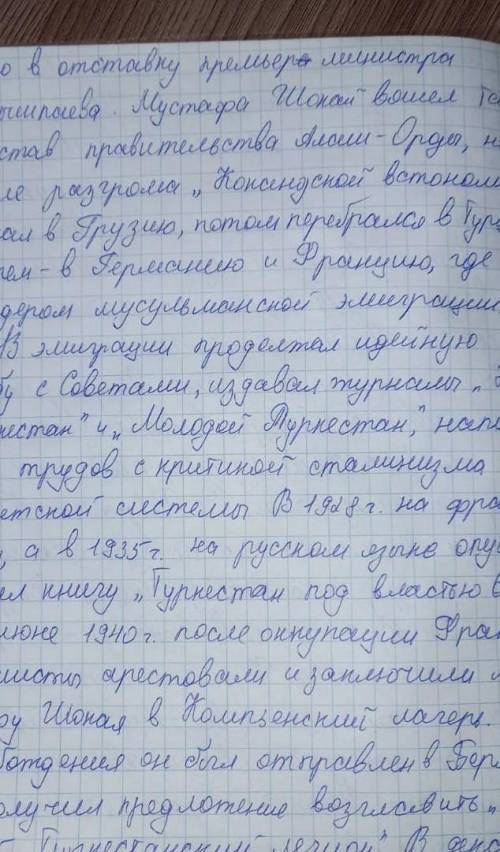 о в отставку премьера министра
ышпаева. Мустафа Шокай вошел
став правительства Алаш-Орды, н
ле разгрома „Кокандской автоном
ал в Грузию, потом перебрался в Тур
тем - в Германию и Францию, где
дером мусульманской эмиграции
В эмиграции продолжал идейную
бу с Советами, издавал журналы „
кестан" и „Молодой Туркестан," напи
трудов с критикой сталинизма
етской системы В 1928 г. на фра
, а в 1935 г. на русском языке опу
ел книгу „Туркестан под властью
июне 1940 г. после оккупации Фран
шисты арестовали и заключили
фу Шокая в Компьенский лагерь.
бождения он был отправлен в Берл
олучил предложение возглавить „
Туркестанский легион" В